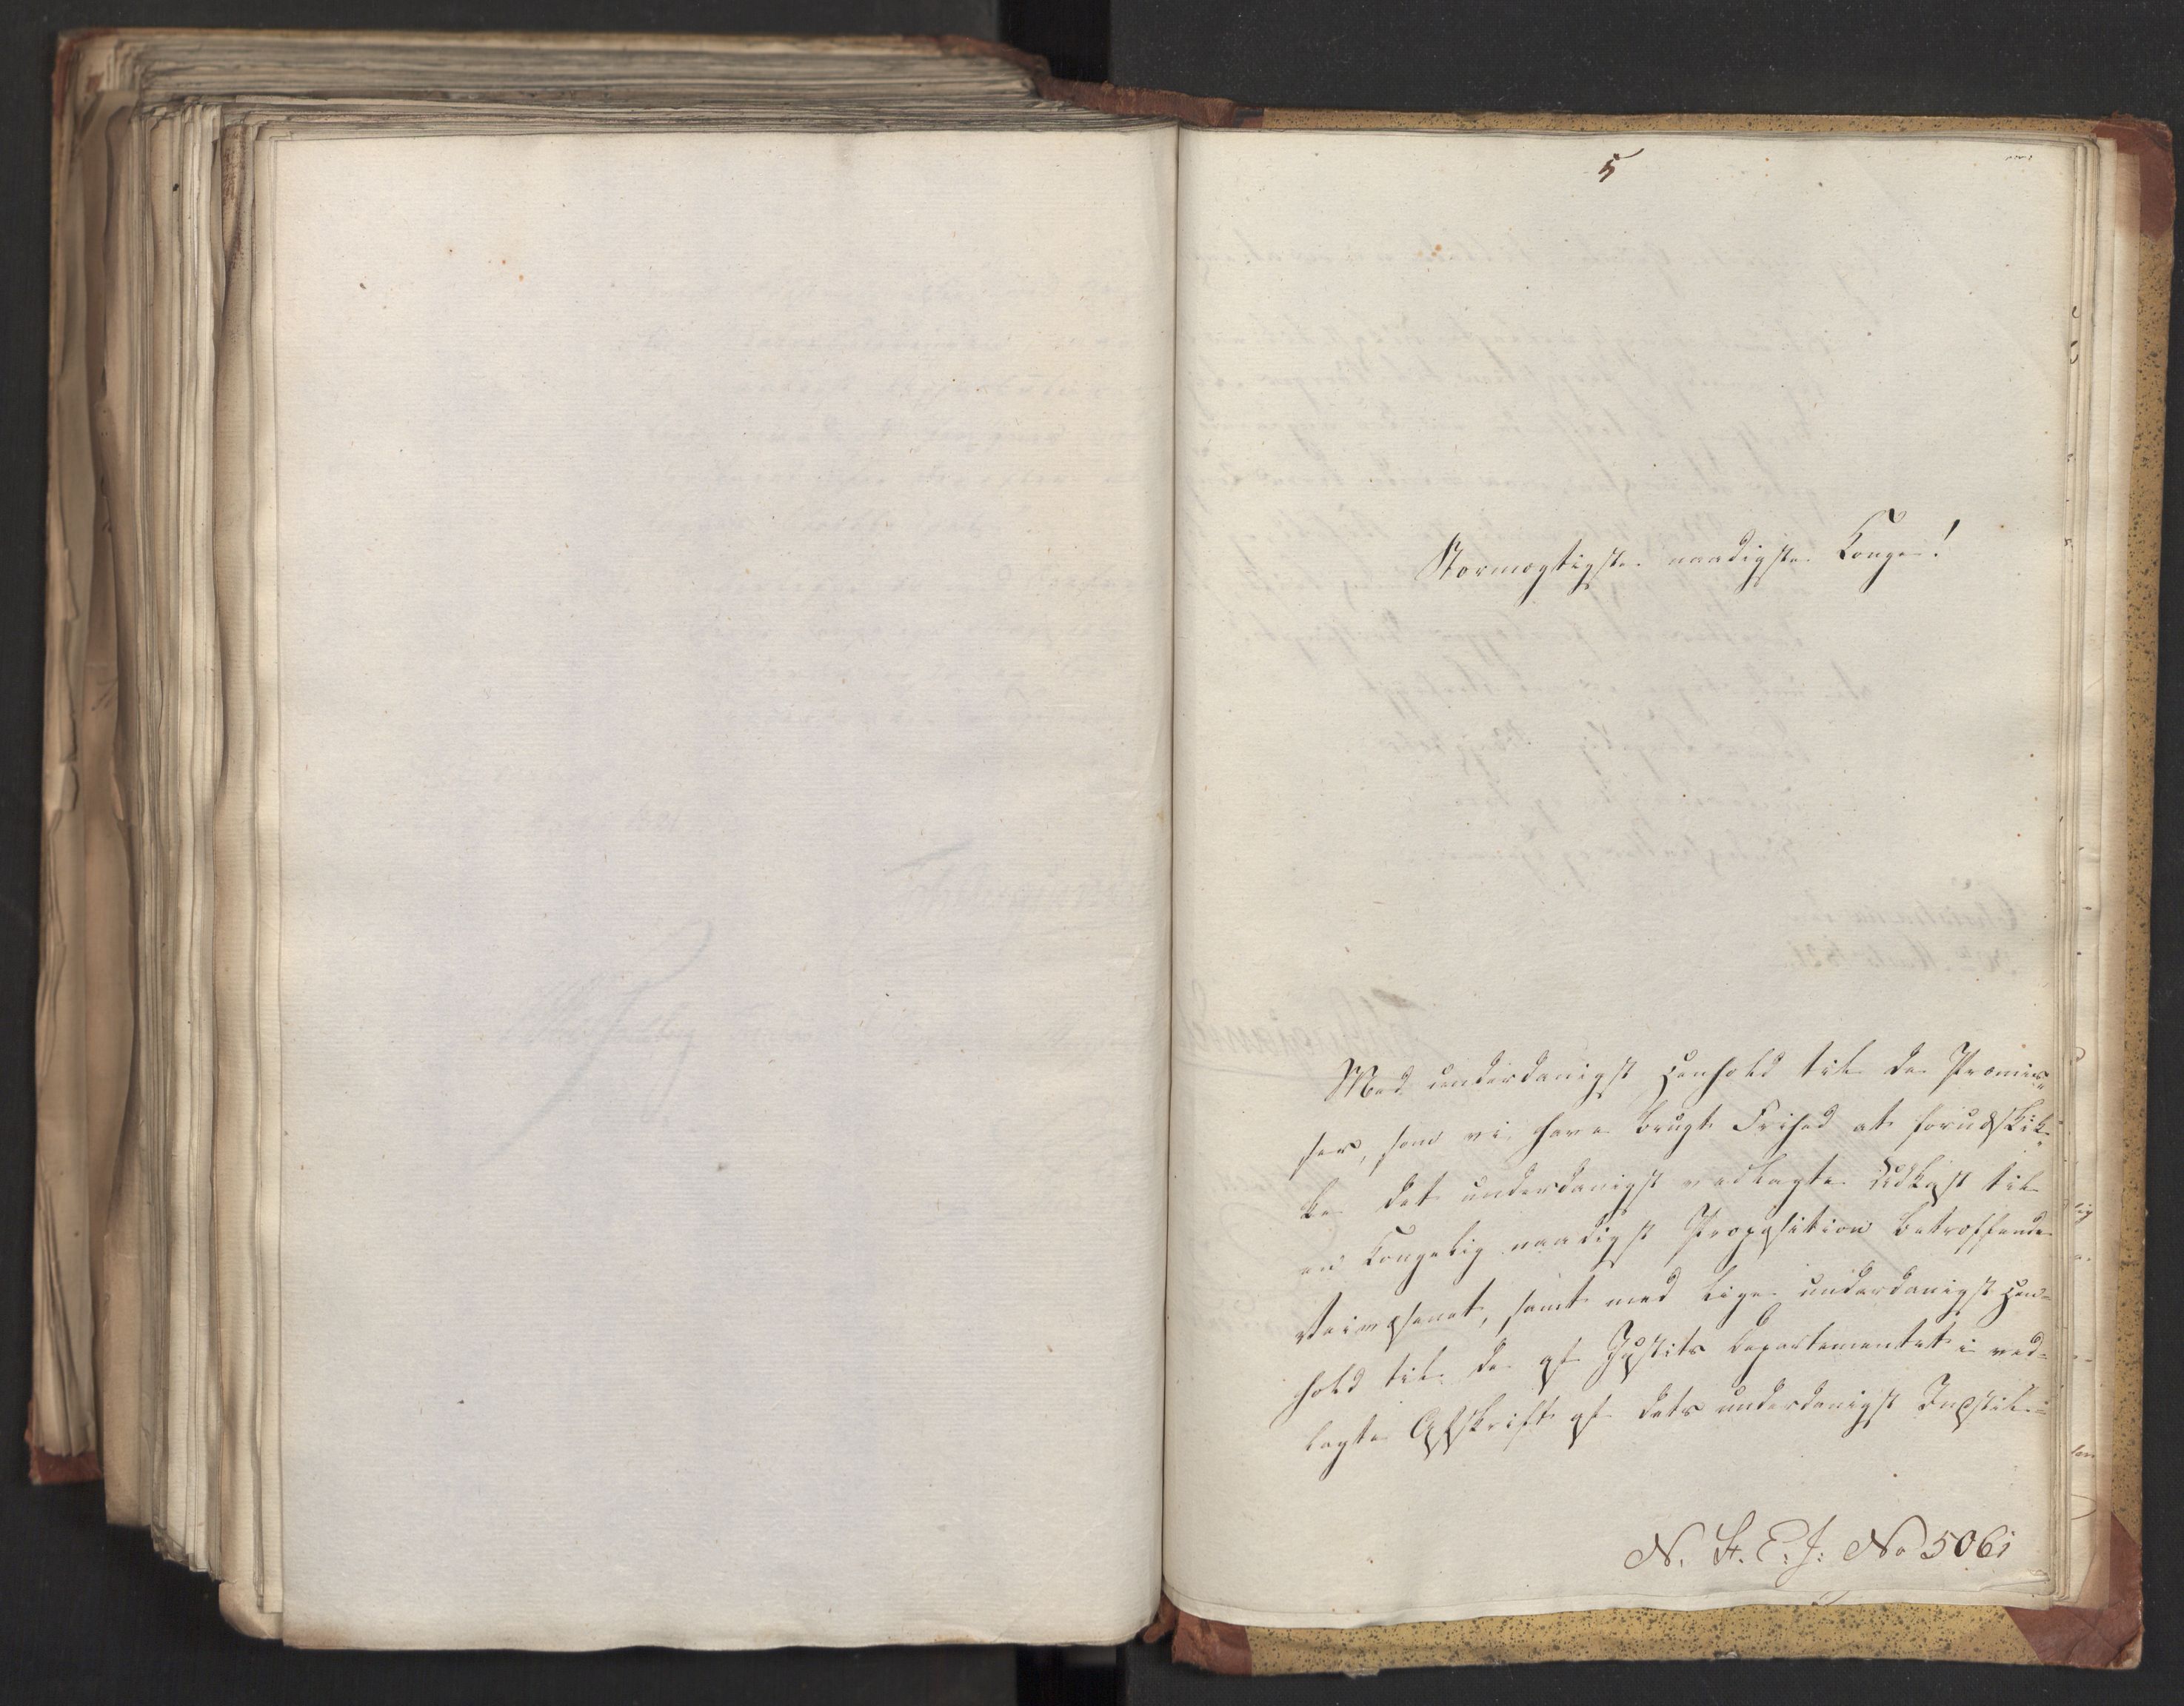 5
Stormægtigste naadigste Konge!
Med underdanigst Henhold til de Præmis„
ser, som vi have brugt Frihed at forudskik„
ke det underdanigst vedlagte Udkast til
en Kongelig naadigst Proposition betræffende
samt med lige underdanigst Hen=
hold til de af Justits Departementet i ved=
lagte Afskrift af dets underdanigst Indstil=
N. St. E. J: No 5061